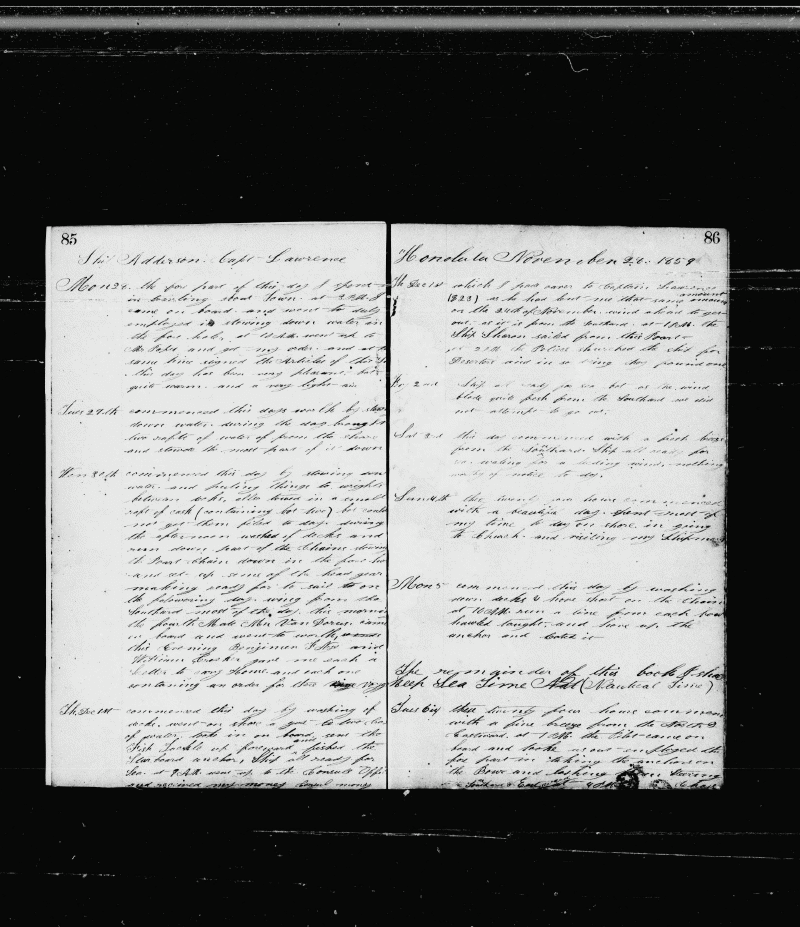 85
Ship Adderson Capt Lawrence
Mon 28 the fore part of this day I spent
in bricking about Town at 2 P.M. I
came on board and went to duty
employed in stowing down water in
the fore hole, at 10 A.M. went up to
Mr Paps and got my order and at the
same time signed the Articles of this
this day has been very pleasant but
quite warm and a very light air
Tues 29th commenced this days work by
down water during the day brought
two rafts of water of from the shore
and stowed the most part of it down
Wen 30th commenced this day by stowing
water and puting things to wrights
between decks, also towed in a small
raft of cask (containing but two) but could
not get them filed to day. during
the afternoon washed of decks and
run down part of the Chains
the Port chain down in the fore
and set up some of the head gear
making ready for to sail to on
the following day. wing from the
Southard most of the day. this
the fourth Mate Mr Van Dorus came
in board and went to work,
this Evening Benjimen F and
William Crocker gave me each a
letter to carry Home and each one
containing an order for
Th Dec 1st commenced this day by washing of
decks, went on shore a got
of water, took in on board and
Fish Tackle up foreward fished the
Starboard anchor, Ship all ready for
Sea. at 9 A.M. went up to A. Consuls Office
and received my money
86
Honolulu November 28. 1859
Th Dec 1st which I paid over to Captain
($23) as he had let me that same amount
on the 24th of November. wind ahead to get
out, as it is from the Southard. at 1 P.M. the
Ship Sharon sailed from this Port
at 2 P.M. the Police searched the ship for
Deserters and in so doing they found one
2nd Ship all ready for sea but as the wind
blows quite fresh from the Southard we did
not attempt to go out.
Sat 3rd this day commenced with a fresh breeze
from the Southard. Ship all ready for
sea. waiting for a leading wind, nothing
worthy of notice to day.
Sun 4th this twenty four hours commenced
with a beautiful day. Spent most of
my time to day on shore in going
to Church and visiting my Shipmates
Mon 5 commenced this day by washing
down decks & hove short on the Chain
at 10 A.M. run a line from each bow
hawled taught and hove up the
anchor and Cated it
The remainder of this book I shall
Keep Sea Time And (Nautical Time)
Tues 6th these twenty four hours commence
with a fine breeze from the
Eastward. at 1 P.M. the Pilot came on
board and took us out employed the
fore part in taking the anchors on
the Bows and lashing
Southard & East